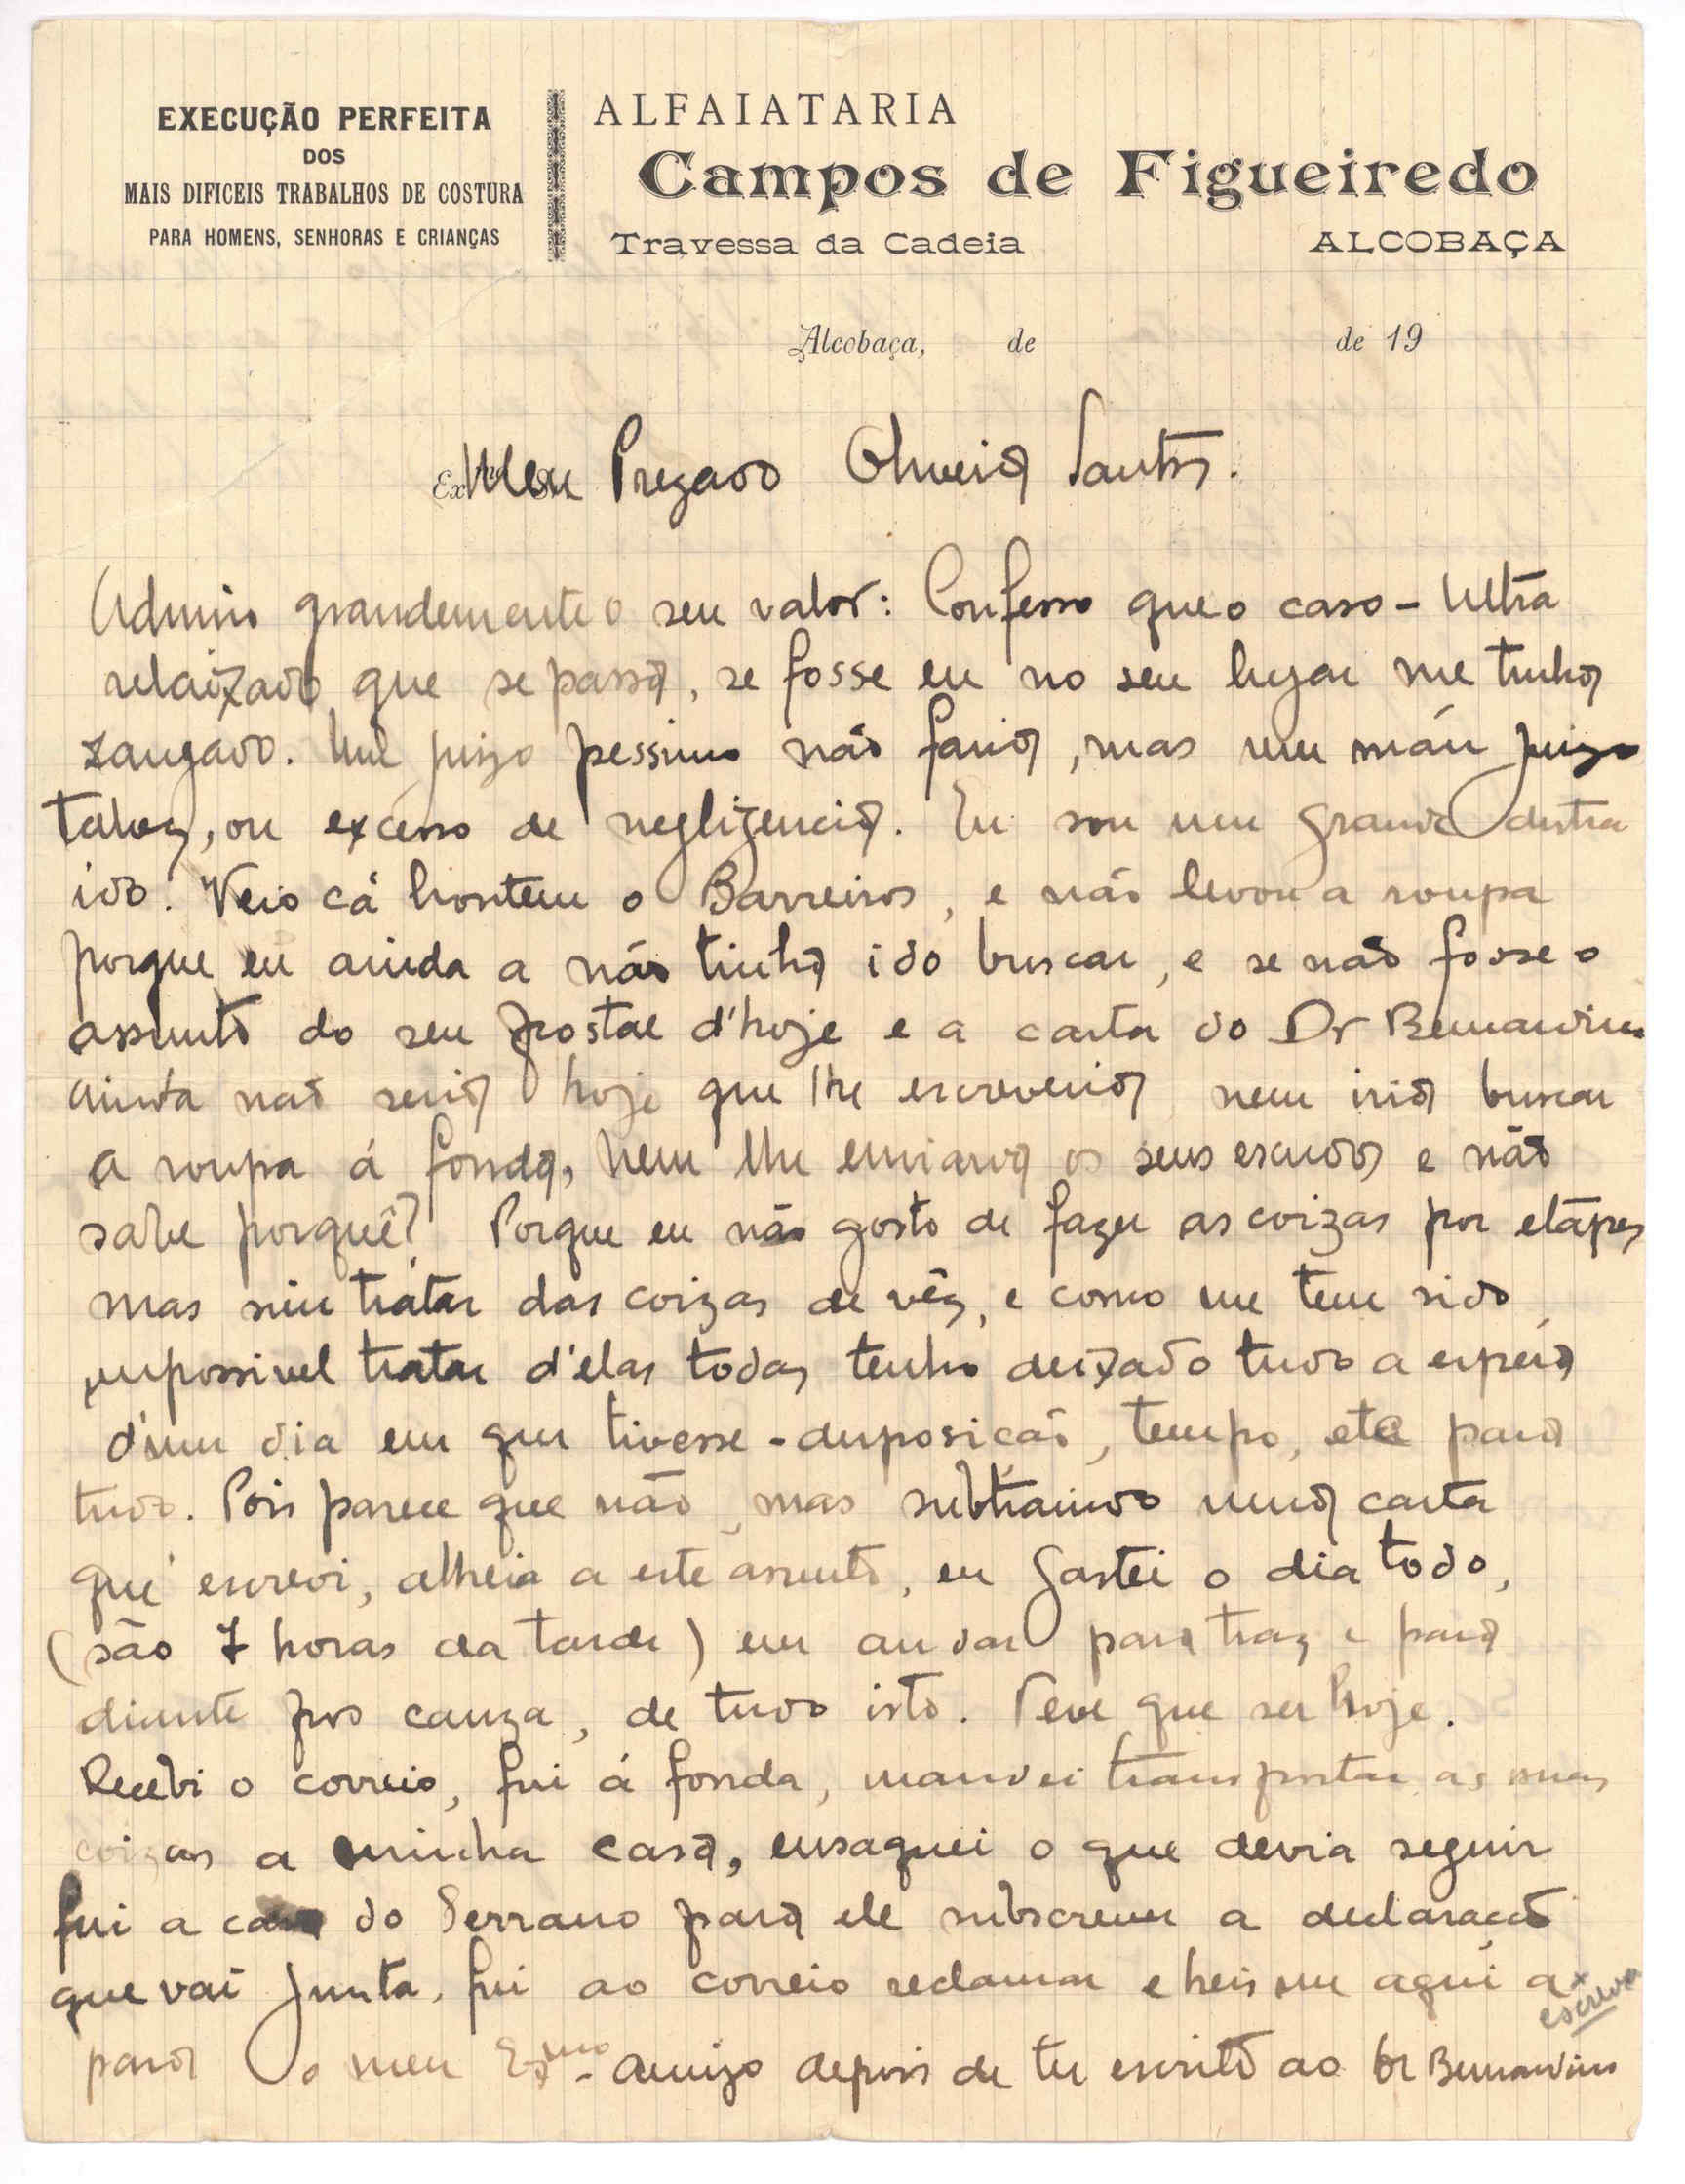 EXECUÇÃO PERFEITA
DOS
MAIS DIFICEIS TRABALHOS DE COSTURA
PARA HOMENS, SENHORAS E CRIANÇAS
ALFAIATARIA
Campos de Figueiredo
Travessa da Cadeia ALCOBAÇA
Alcobaça, de de 19
Meu Prezado Oliveira Santos.
Admiro grandemente o seu valor: Confesso que o caso - Ultra
relaixado que se passa, se fosse eu no seu lugar me tinha
zangado. Um juizo pessimo não faria, mas um máu juizo
talvez, ou excesso de negligencia. Eu sou um grande distra
ido. Veio cá hontem o Barreiros, e não levou a roupa
porque eu ainda a não tinha ido buscar, e se não fosse o
assunto do seu postal d'hoje e a carta do Dr Bernardino
ainda não seria hoje que lhe escreveria nem iria buscar
a roupa á fonda, nem lhe enviava os seus escudos e não
sabe porquê? Porque eu não gosto de fazer as coizas por etápes
mas sim tratar das coizas de vêz, e como me tem sido
impossivel tratar d'elas todas tenho deixado tudo a espera
d'um dia em que tivesse - disposição, tempo, etc para
tudo. Pois parece que não, mas subtraindo uma carta
que escrevi, alheia a este assunto, eu gastei o dia todo,
(são 7 horas da tarde) em andar para traz e para
diante por cauza, de tudo isto. Teve que ser hoje.
Recebi o correio, fui á fonda, mandei transportar as suas
coizas a minha casa, ensaquei o que devia seguir
fui a casa do Serrano para ele subscrever a declaração
que vai junta, fui ao correio reclamar e heis me aqui a x
escrever
para o meu Exmo. Amigo depois de ter escrito ao Dr Bernardino